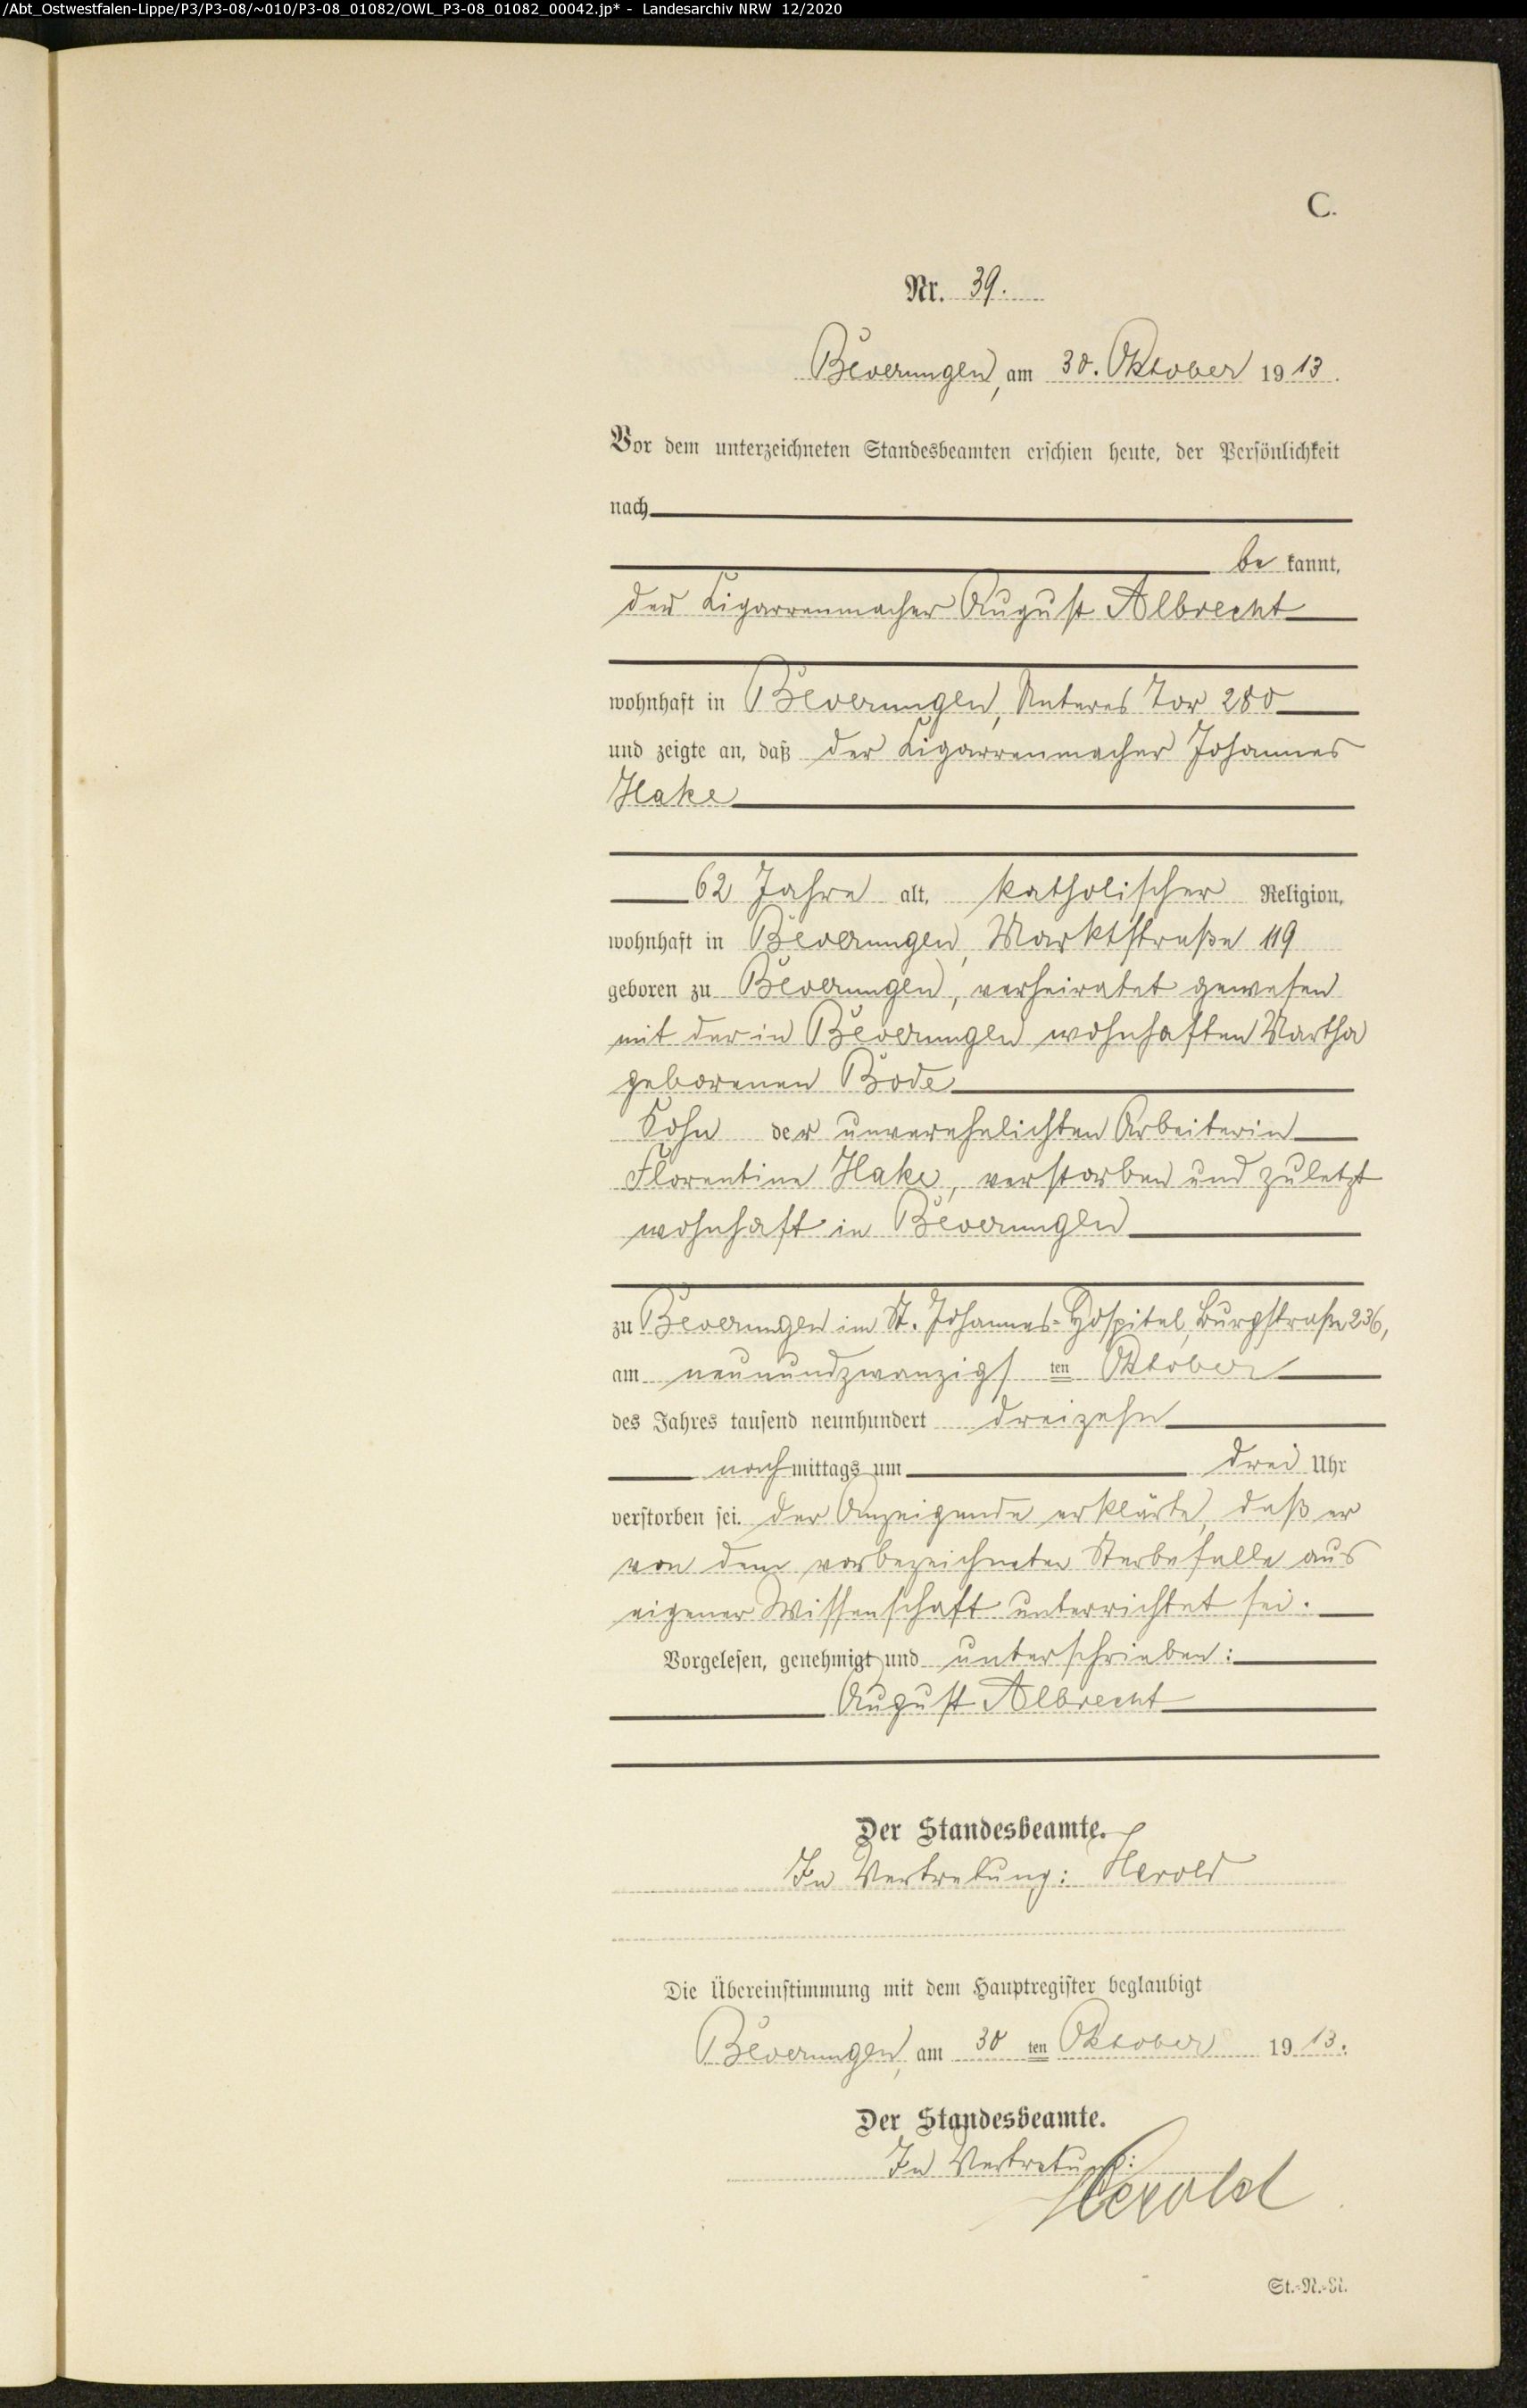 /Abt_Ostwestfalen-Lippe/P3/P3-08/~010/P3-08_01082/OWL_P3-08_01082_00042.jp* - Landesarchiv NRW 12/2020
C.
Nr. 39.
Beverungen, am 30. Oktober 1913.
Vor dem unterzeichneten Standesbeamten erschien heute, der Persönlichkeit
nach
be kannt,
der Zigarrenmacher August Albrecht
wohnhaft in Beverungen, Unteres Tor 280
und zeigte an, daß der Zigarrenmacher Johannes
Hake
62 Jahre alt, katholischer Religion,
wohnhaft in Beverungen, Marktstraße 119
geboren zu Beverungen, verheiratet gewesen
mit der in Beverungen wohnhaften Martha
geborenen Bode
Sohn der unverehelichten Arbeiterin
Florentine Hake, verstorben und zuletzt
wohnhaft in Beverungen
zu Beverungen im St. Johannes-Hospital, Burgstraße 236,
am neunundzwanzigsten Oktober
des Jahres tausend neunhundert dreizehn
nachmittags um drei Uhr
verstorben sei. Der Anzeigende erklärte, daß er
von dem vorbezeichneten Sterbefalle aus
eigener Wissenschaft unterrichtet sei.
Vorgelesen, genehmigt und unterschrieben:
August Albrecht
Der Standesbeamte.
In Vertretung: Herold
Die Übereinstimmung mit dem Hauptregister beglaubigt
Beverungen, am 30ten Oktober 1913.
Der Standesbeamte.
In Vertretung:
Herold
St.-N.-R.